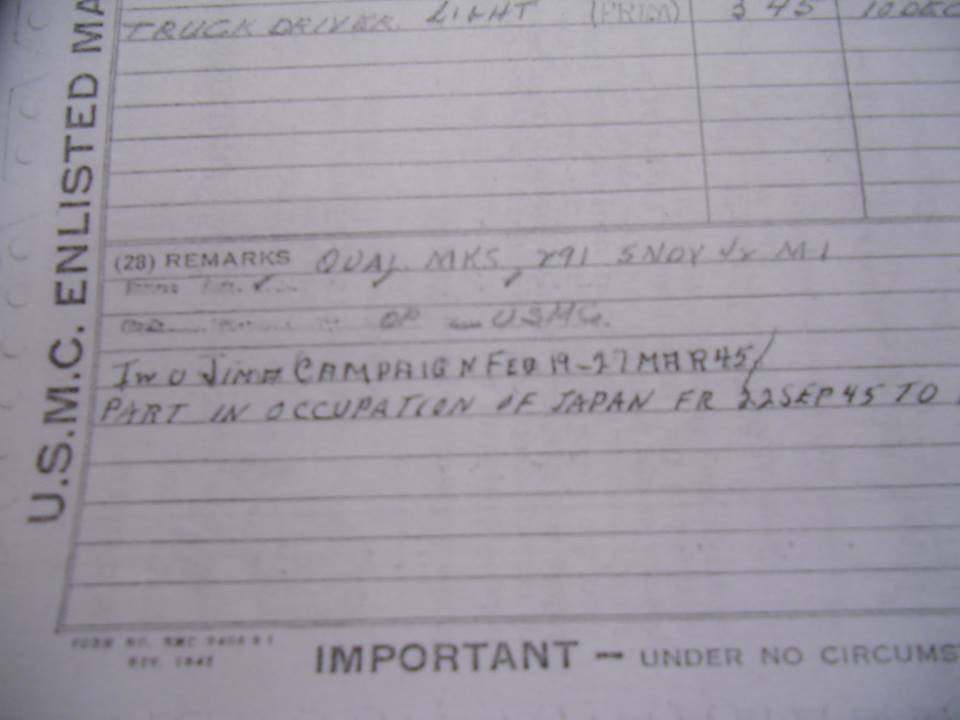 U.S.M.C. ENLISTED MA
TRUCK DRIVER LIGHT (PRIM) 3 45 10 DEC
(28) REMARKS QUAL MKS, 291 5 NOV M-1
OP USMC.
IWO JIMA CAMPAIGN FEB 19-27 MAR 45/
PART IN OCCUPATION OF JAPAN FR 22 SEP 45 TO
FORM NO.
IMPORTANT – UNDER NO CIRCUMS